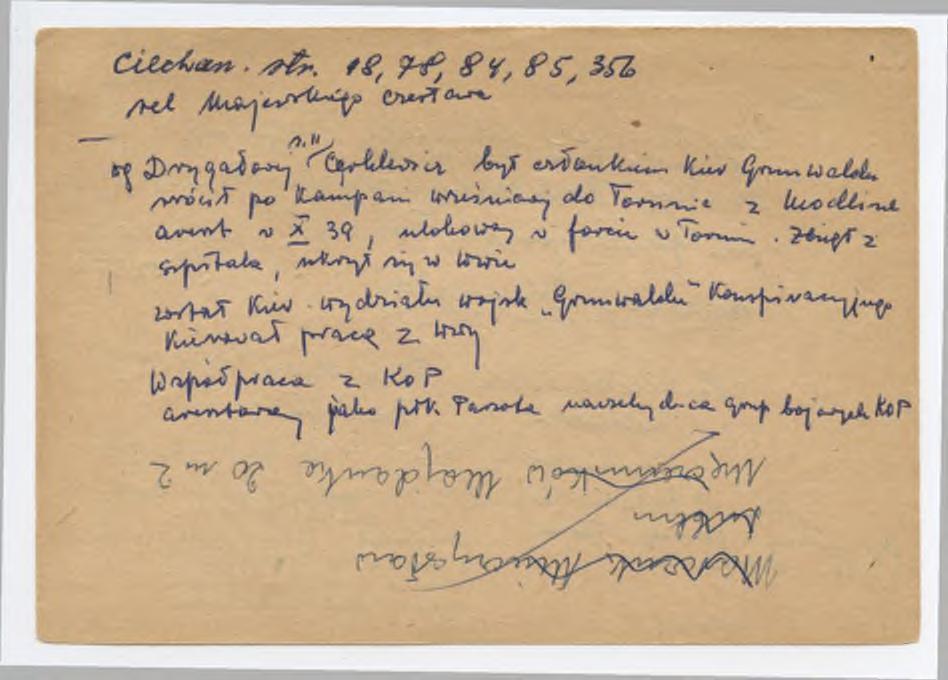 Ciechan. str. 18, 78, 84, 85, 356
rel Majewskiego Czesława
wg Drygałowej n. był członkiem Kier Grunwaldu
wrócił po Kampani wrześniowej do Torunia z Modlina
areszt w X 39, ulokowany w forcie w Toruniu. Zbiegł z
szpitala, ukrył się w
został Kier. wydziału wojsk „Grunwaldu" Konspiracyjnego
Kierował pracą z
Współpraca z KOP
aresztowany jako płk naczelny d-ca grup bojowych KOP
Męczenników Majdanka 20 m 2
Lublin
Mieczysław